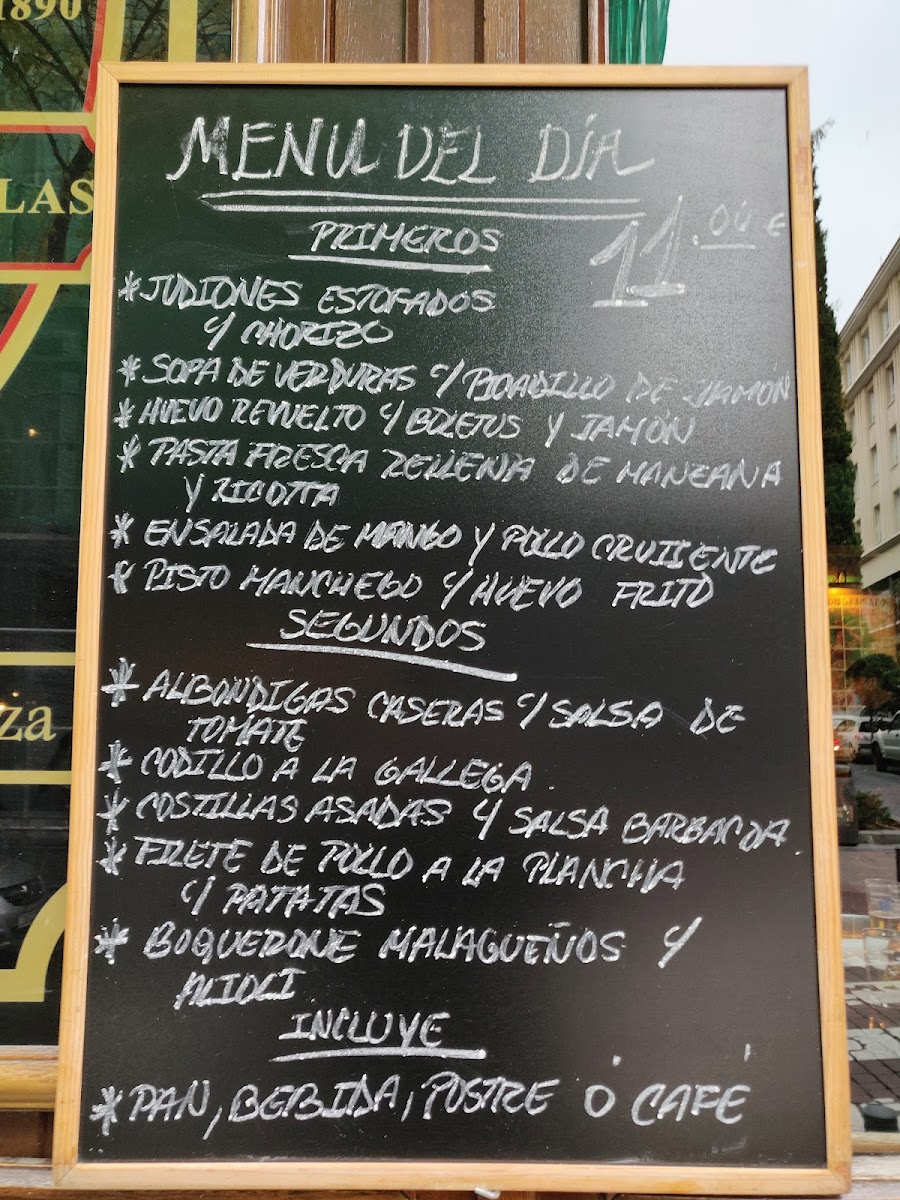 1890
LAS
za
MENU DEL DÍA
11.00 €
PRIMEROS
* JUDIONES ESTOFADOS
Y CHORIZO
* SOPA DE VERDURAS C/ PICADILLO DE JAMÓN
* HUEVO REVUELTO C/ BOLETUS Y JAMÓN
* PASTA FRESCA RELLENA DE MANZANA
Y RICOTTA
* ENSALADA DE MANGO Y POLLO CRUJIENTE
* PISTO MANCHEGO C/ HUEVO FRITO
SEGUNDOS
* ALBONDIGAS CASERAS C/ SALSA DE
TOMATE
* CODILLO A LA GALLEGA
* COSTILLAS ASADAS Y SALSA BARBACOA
* FILETE DE POLLO A LA PLANCHA
C/ PATATAS
* BOQUERONE MALAGUEÑOS Y
ALIOLI
INCLUYE
* PAN, BEBIDA, POSTRE Ó CAFÉ